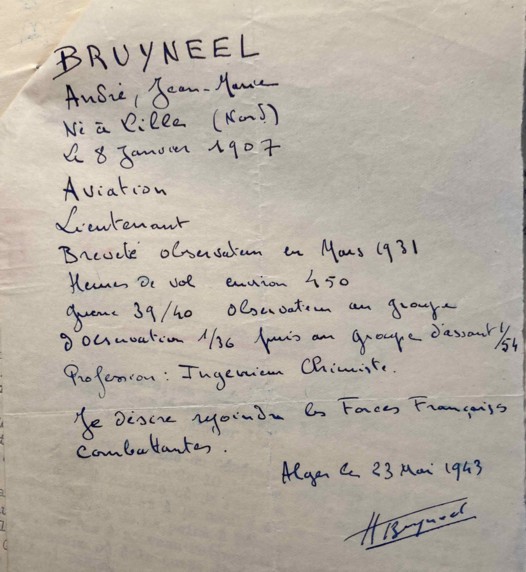 BRUYNEEL
André, Jean-Marie
Né à Lille (Nord)
Le 8 Janvier 1907
Aviation
Lieutenant
Breveté observateur en Mars 1931
Heures de vol environ 450
guerre 39/40 observateur au groupe
d'observation 1/36 puis au groupe d'assaut 1/54
Profession : Ingénieur Chimiste.
Je désire rejoindre les Forces Françaises
Combattantes.
Alger le 23 Mai 1943
ABruyneel